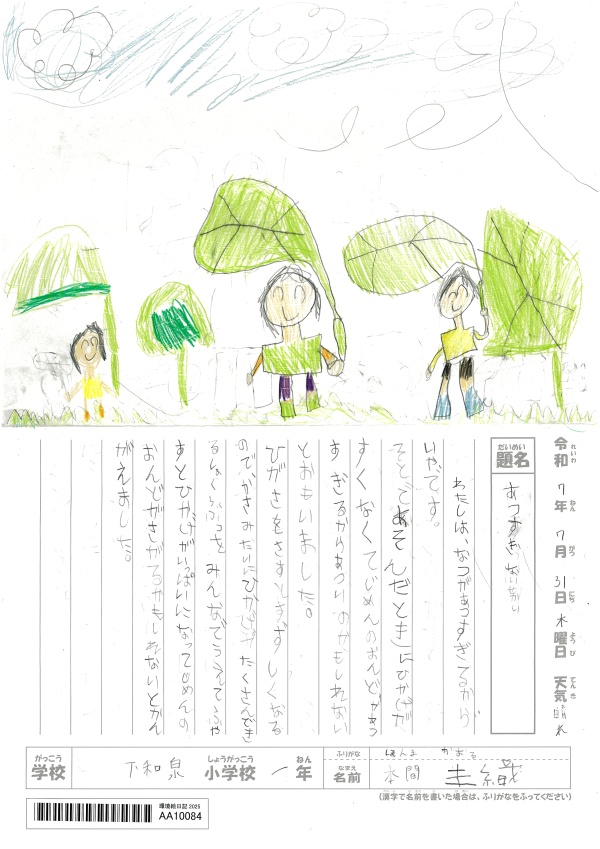 令和 7年 7月 31日 木曜日 天気 晴れ
れいわ ねん がつ にち よう び てんき
だいめい
題名
あつすぎ
わたしは、なつがあつすぎるから
いやです。
そとであそんだときにひかげが
すくなくてじめんのおんどがあつ
すぎるからあついのかもしれない
とおもいました。
ひがさをさすとすずしくなる
ので、かさみたいにひかげが たくさんでき
るしょくぶつを みんなでうえてふや
すとひかげがいっぱいになってじめんの
おんどがさがるかもしれないとかん
がえました。
がっこう
学校
下和泉
しょうがっこう
小学校
一
ねん
年
ふりがな
ほんま かおる
なまえ
名前
本間 圭織
(漢字で名前を書いた場合は、ふりがなをふってください)
環境絵日記 2025
AA10084